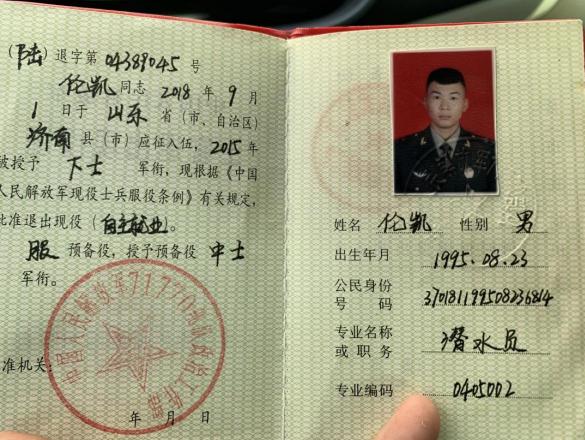 （陆）退字第 04389045 号
伦凯 同志 2018 年 9 月
1 日于 山东 省（市、自治区）
济南 县（市）应征入伍，2015 年
被授予 下士 军衔，现根据《中国
人民解放军现役士兵服役条例》有关规定，
批准退出现役（自主就业）。
服 预备役，授予预备役 中士
军衔。
准机关：
年 月 日
中国人民解放军71770部队政治工作部
姓名 伦凯 性别 男
出生年月 1995.08.23
公民身份
号码 370181199508236814
专业名称
或职务 潜水员
专业编码 0405002